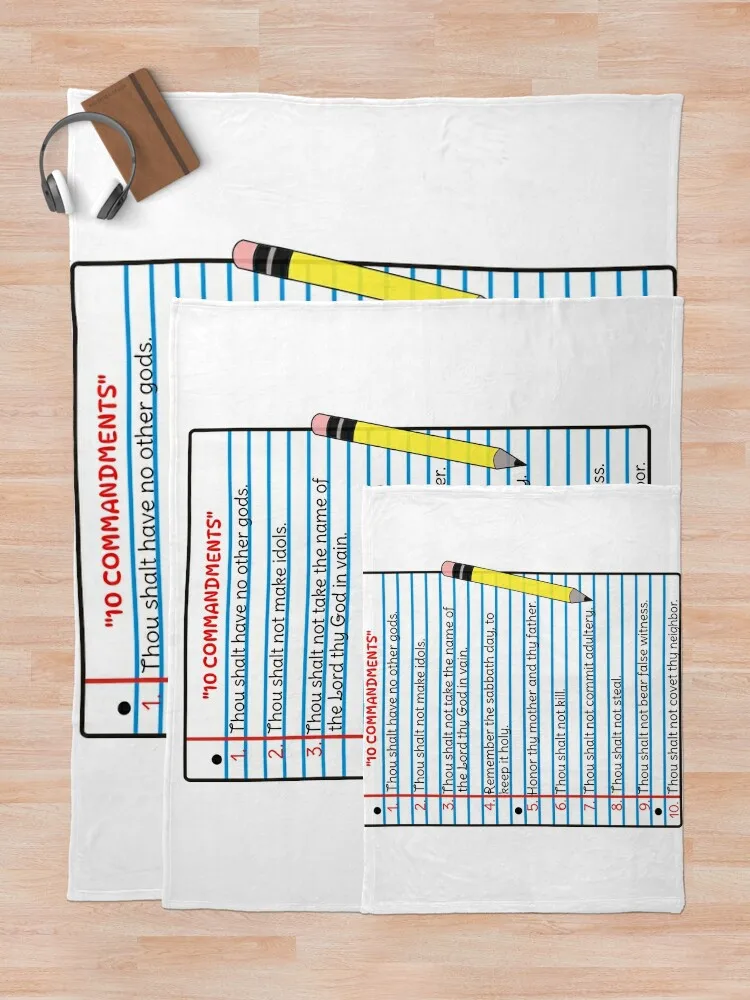 "10 COMMANDMENTS"
1. Thou shalt have no other gods.
"10 COMMANDMENTS"
1. Thou shalt have no other gods.
2. Thou shalt not make idols.
3. Thou shalt not take the name of
the Lord thy God in vain.
er.
y.
ss.
or.
"10 COMMANDMENTS"
1. Thou shalt have no other gods.
2. Thou shalt not make idols.
3. Thou shalt not take the name of
the Lord thy God in vain.
4. Remember the sabbath day, to
keep it holy.
5. Honor thy mother and thy father.
6. Thou shalt not kill.
7. Thou shalt not commit adultery.
8. Thou shalt not steal.
9. Thou shalt not bear false witness.
10. Thou shalt not covet thy neighbor.